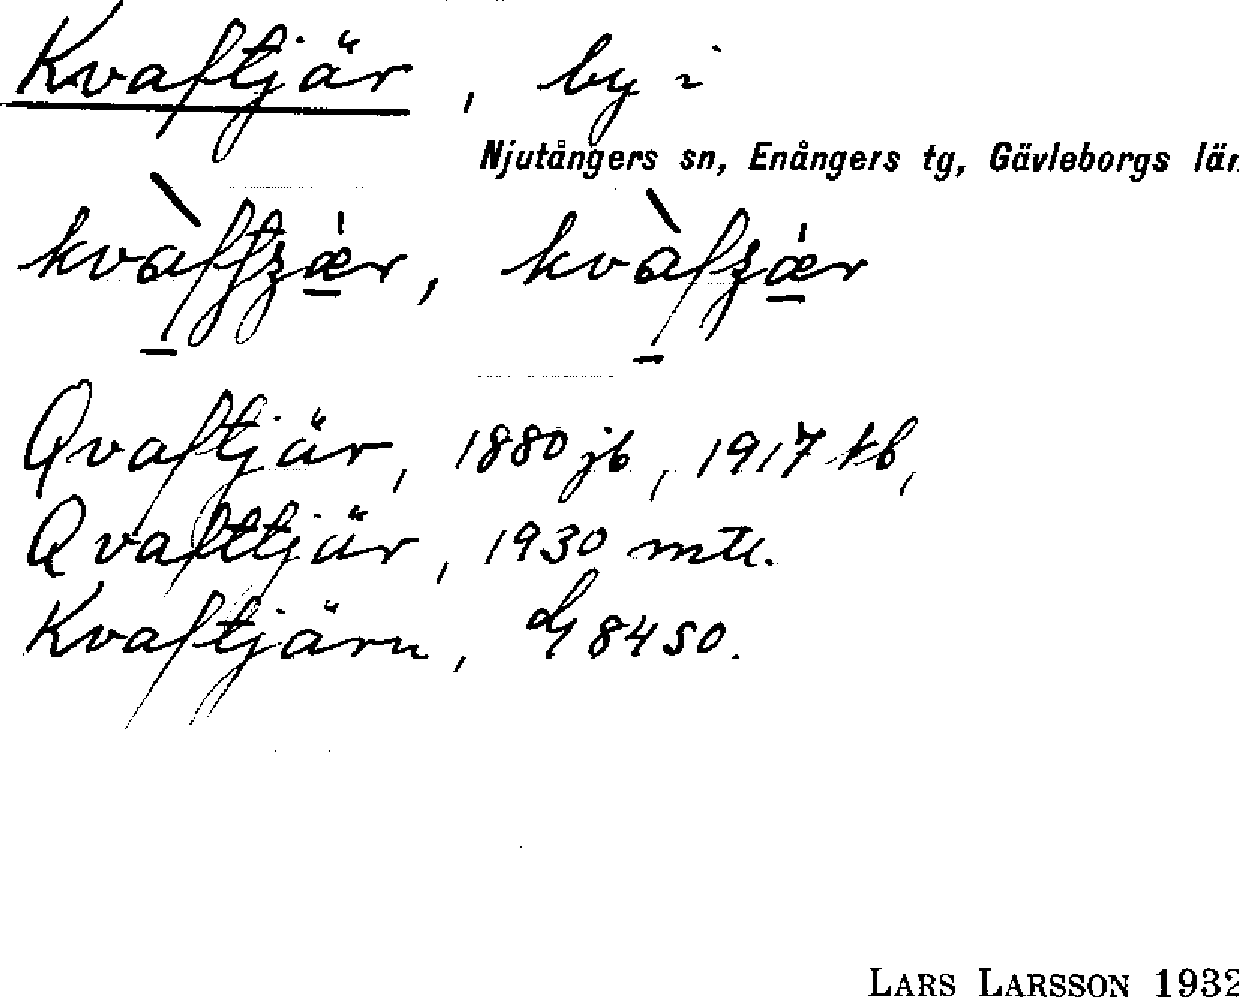 Kvaftjär, by i
Njutångers sn, Enångers tg, Gävleborgs län
Qvaftjär, 1880 jb, 1917 kb,
Qvafttjär, 1930 mtl.
Kvaftjärn, G 8450.
LARS LARSSON 1932